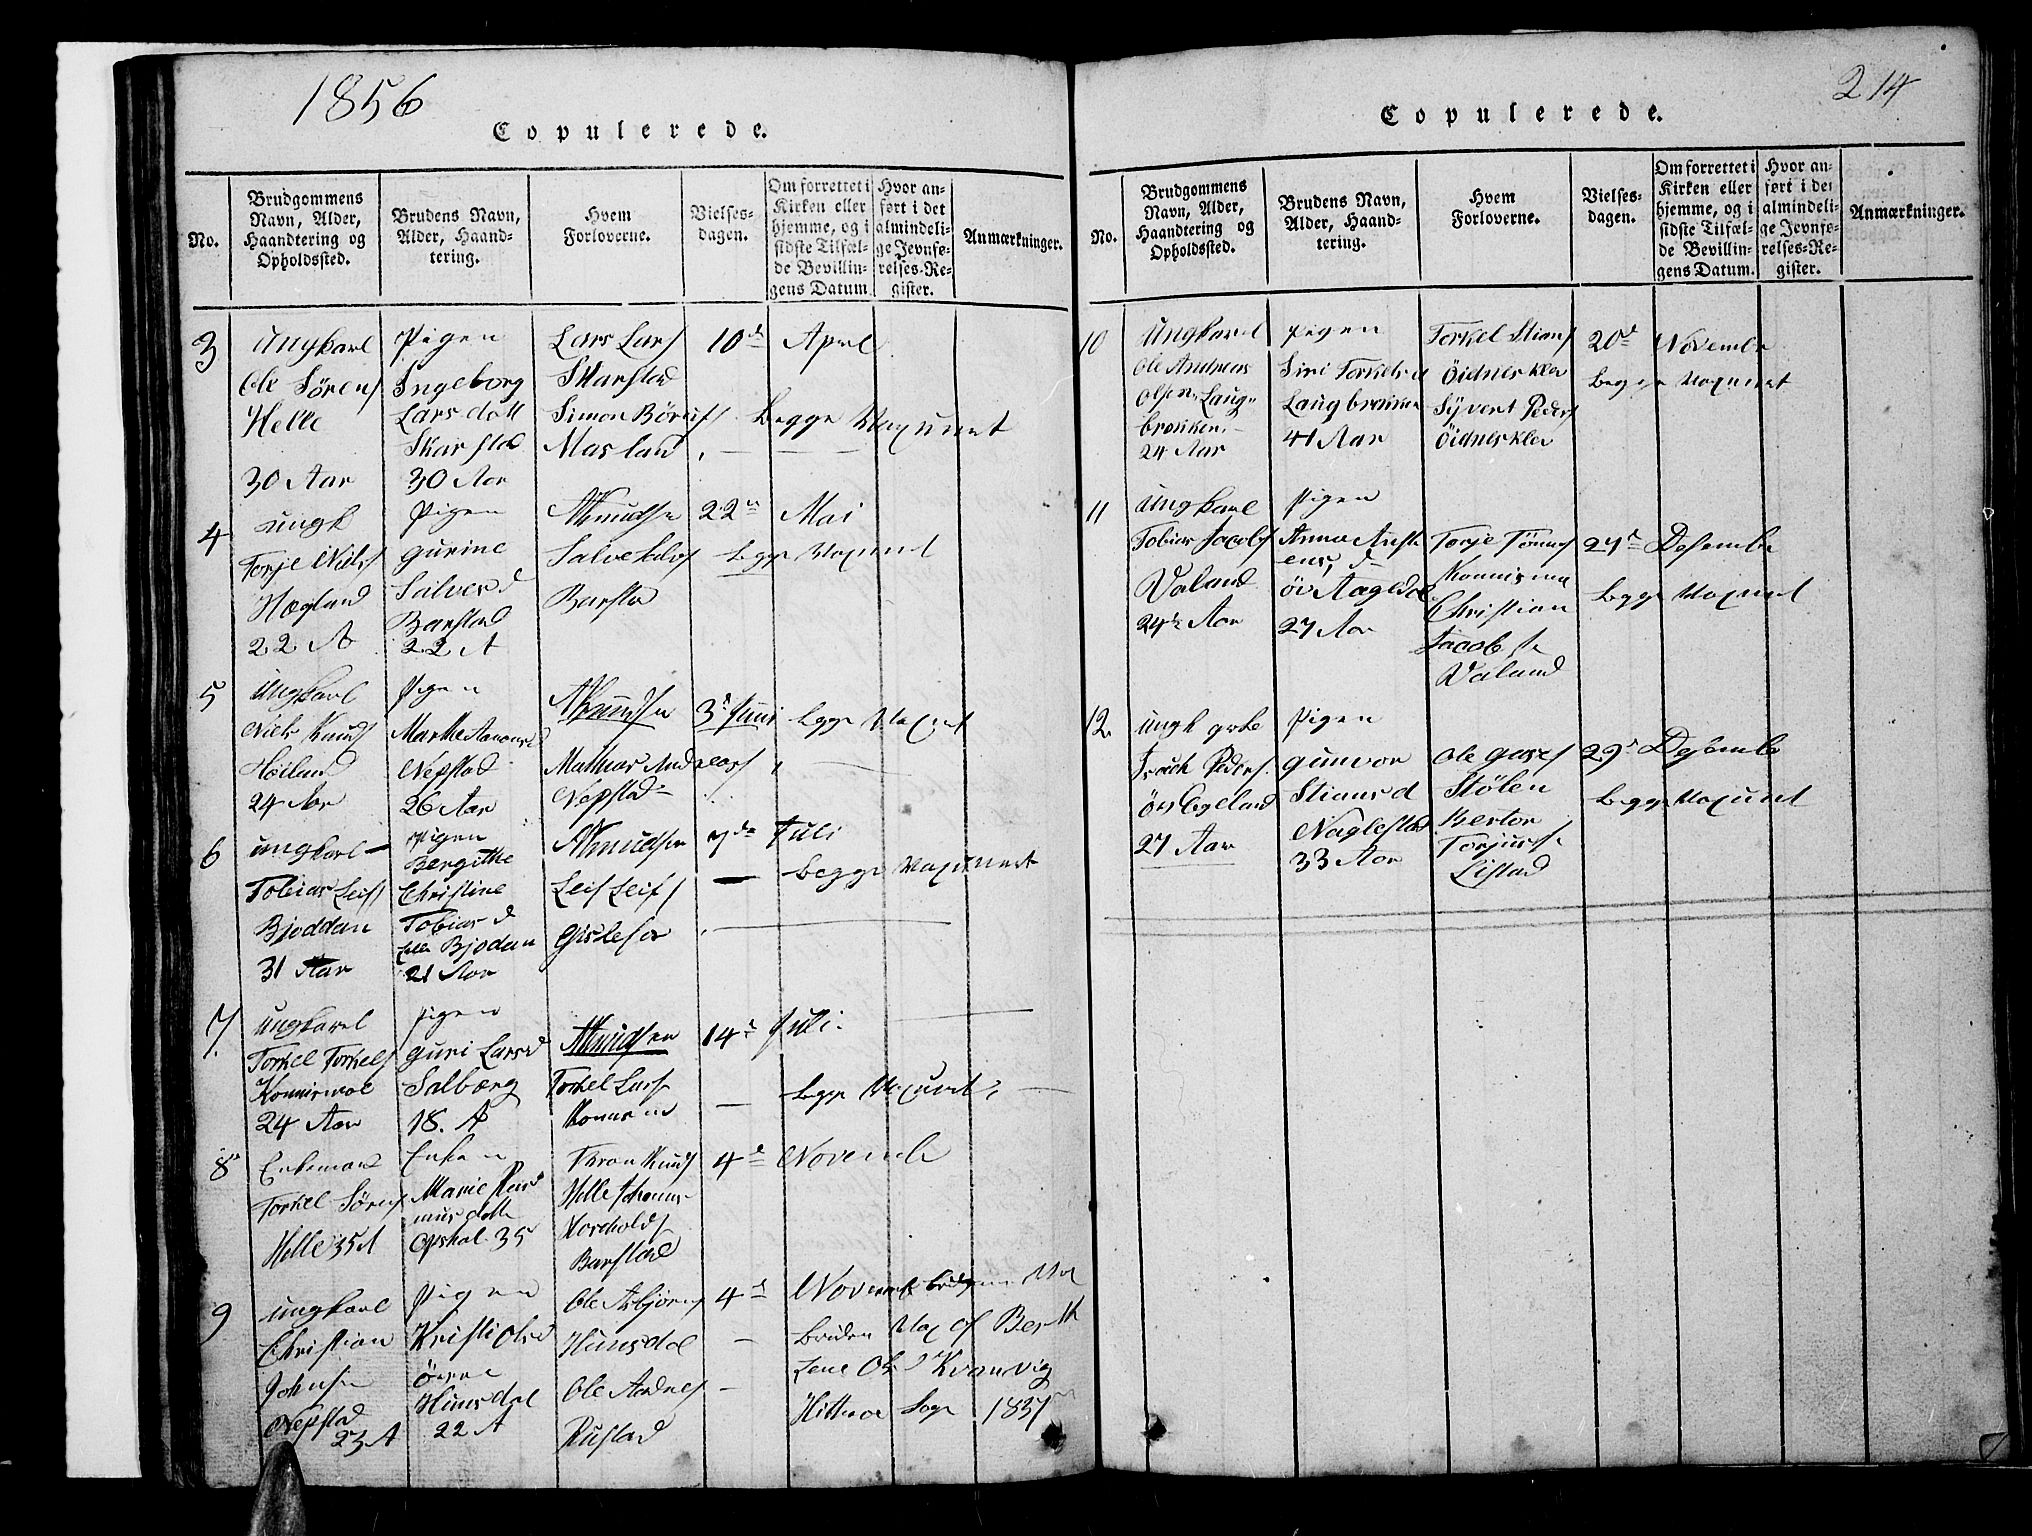 1856
Copulerede.
No.
Brudgommens
Navn, Alder,
Haandtering og
Opholdssted.
Brudens Navn,
Alder, Haand-
tering.
Hvem
Forloverne.
Vielses-
dagen.
Om forrettet i
Kirken eller
hjemme, og i
sidste Tilfæl-
de Bevillin-
gens Datum.
Hvor an-
ført i det
almindeli-
ge Jevnfø-
relses-Re-
gister.
Anmærkninger.
3
Ungkarl
Ole Sörens
Helle
30 Aar
Pigen
Ingeborg
Lars datt
Skarstad
30 Aar
Lars Lars
Skarstad
Simon Börufs
Masland
10d April
Begge Vaxunert
4
Ungk
Torje Niels
Hægland
22 A
Pigen
Gurine
Salves d
Barstad
22 A
AKnudsen
Salve Salvs
Barstad
22n Mai
begge Vaxunet
5
Ungkarl
Niels Knuds
Høiland
24 Aar
Pigen
Marthe
Nepstad
26 Aar
AKnudsen
Mathias Andreas
Nepstad
3d Juni
begge Vaxunet
6
Ungkarl
Tobias Leifs
Bjoddan
31 Aar
Pigen
Bergithe
Christine
Tobias d
Bjodan
21 Aar
AKnudsen
Leif Leifs
Gislefor
7de Juli
begge Vaxunert
7
Ungkarl
Torkel Torkels
24 Aar
Pigen
Guri Larsd
Salbærg
18. A
AKnudsen
Torkel Lars
14d Juli.
begge Vaxunet
8
Enkemand
Torkel Sörens
Helle 35 A
Enken
Marie Ras
mus datt
Opskal 35
Knuds
Helle
Barstad
4d Novemb
9
Ungkarl
Christian
Johnsen
Nepstad
23 A
Pigen
Kristi Olsd
övre
Hunsdal
22 A
Ole Asbjörns
Hunsdal
Ole Aadnes
Rustad
4d Novemb
Bruden Vax af Berth
Lene Ols d Kvanvig
Hitterøe Sogn 1837
214
Copulerede.
No.
Brudgommens
Navn, Alder,
Haandtering og
Opholdssted.
Brudens Navn,
Alder, Haand-
tering.
Hvem
Forloverne.
Vielses-
dagen.
Om forrettet i
Kirken eller
hjemme, og i
sidste Tilfæl-
de Bevillin-
gens Datum.
Hvor an-
ført i det
almindeli-
ge Jevnfø-
relses-Re-
gister.
Anmærkninger.
10
Ungkarl
Ole Andreas
Olsen Laug-
brøkken
24 Aar
Pigen
Siri Torkels d
Laugbrøkken
41 Aar
Torkel Stians
Öidnesklev
Syvert Peders
Öidnesklev
20d November
Begge Vaxunet
11
Ungkarl
Tobias Jacobs
Valand
24½ Aar
Pigen
Anna
ens, d
öv Aagedal
27 Aar
Torje Tönnes
Christian
Jacobsen
Valand
27d Desembe
begge Vaxunet
12
Ungk
Isach Peders
övs Egeland
27 Aar
Pigen
Gunvor
Stians d
Naglestad
33 Aar
Ole
Stölen
Berthor
Torjuss
Listad
29d Desembe
begge Vaxunet